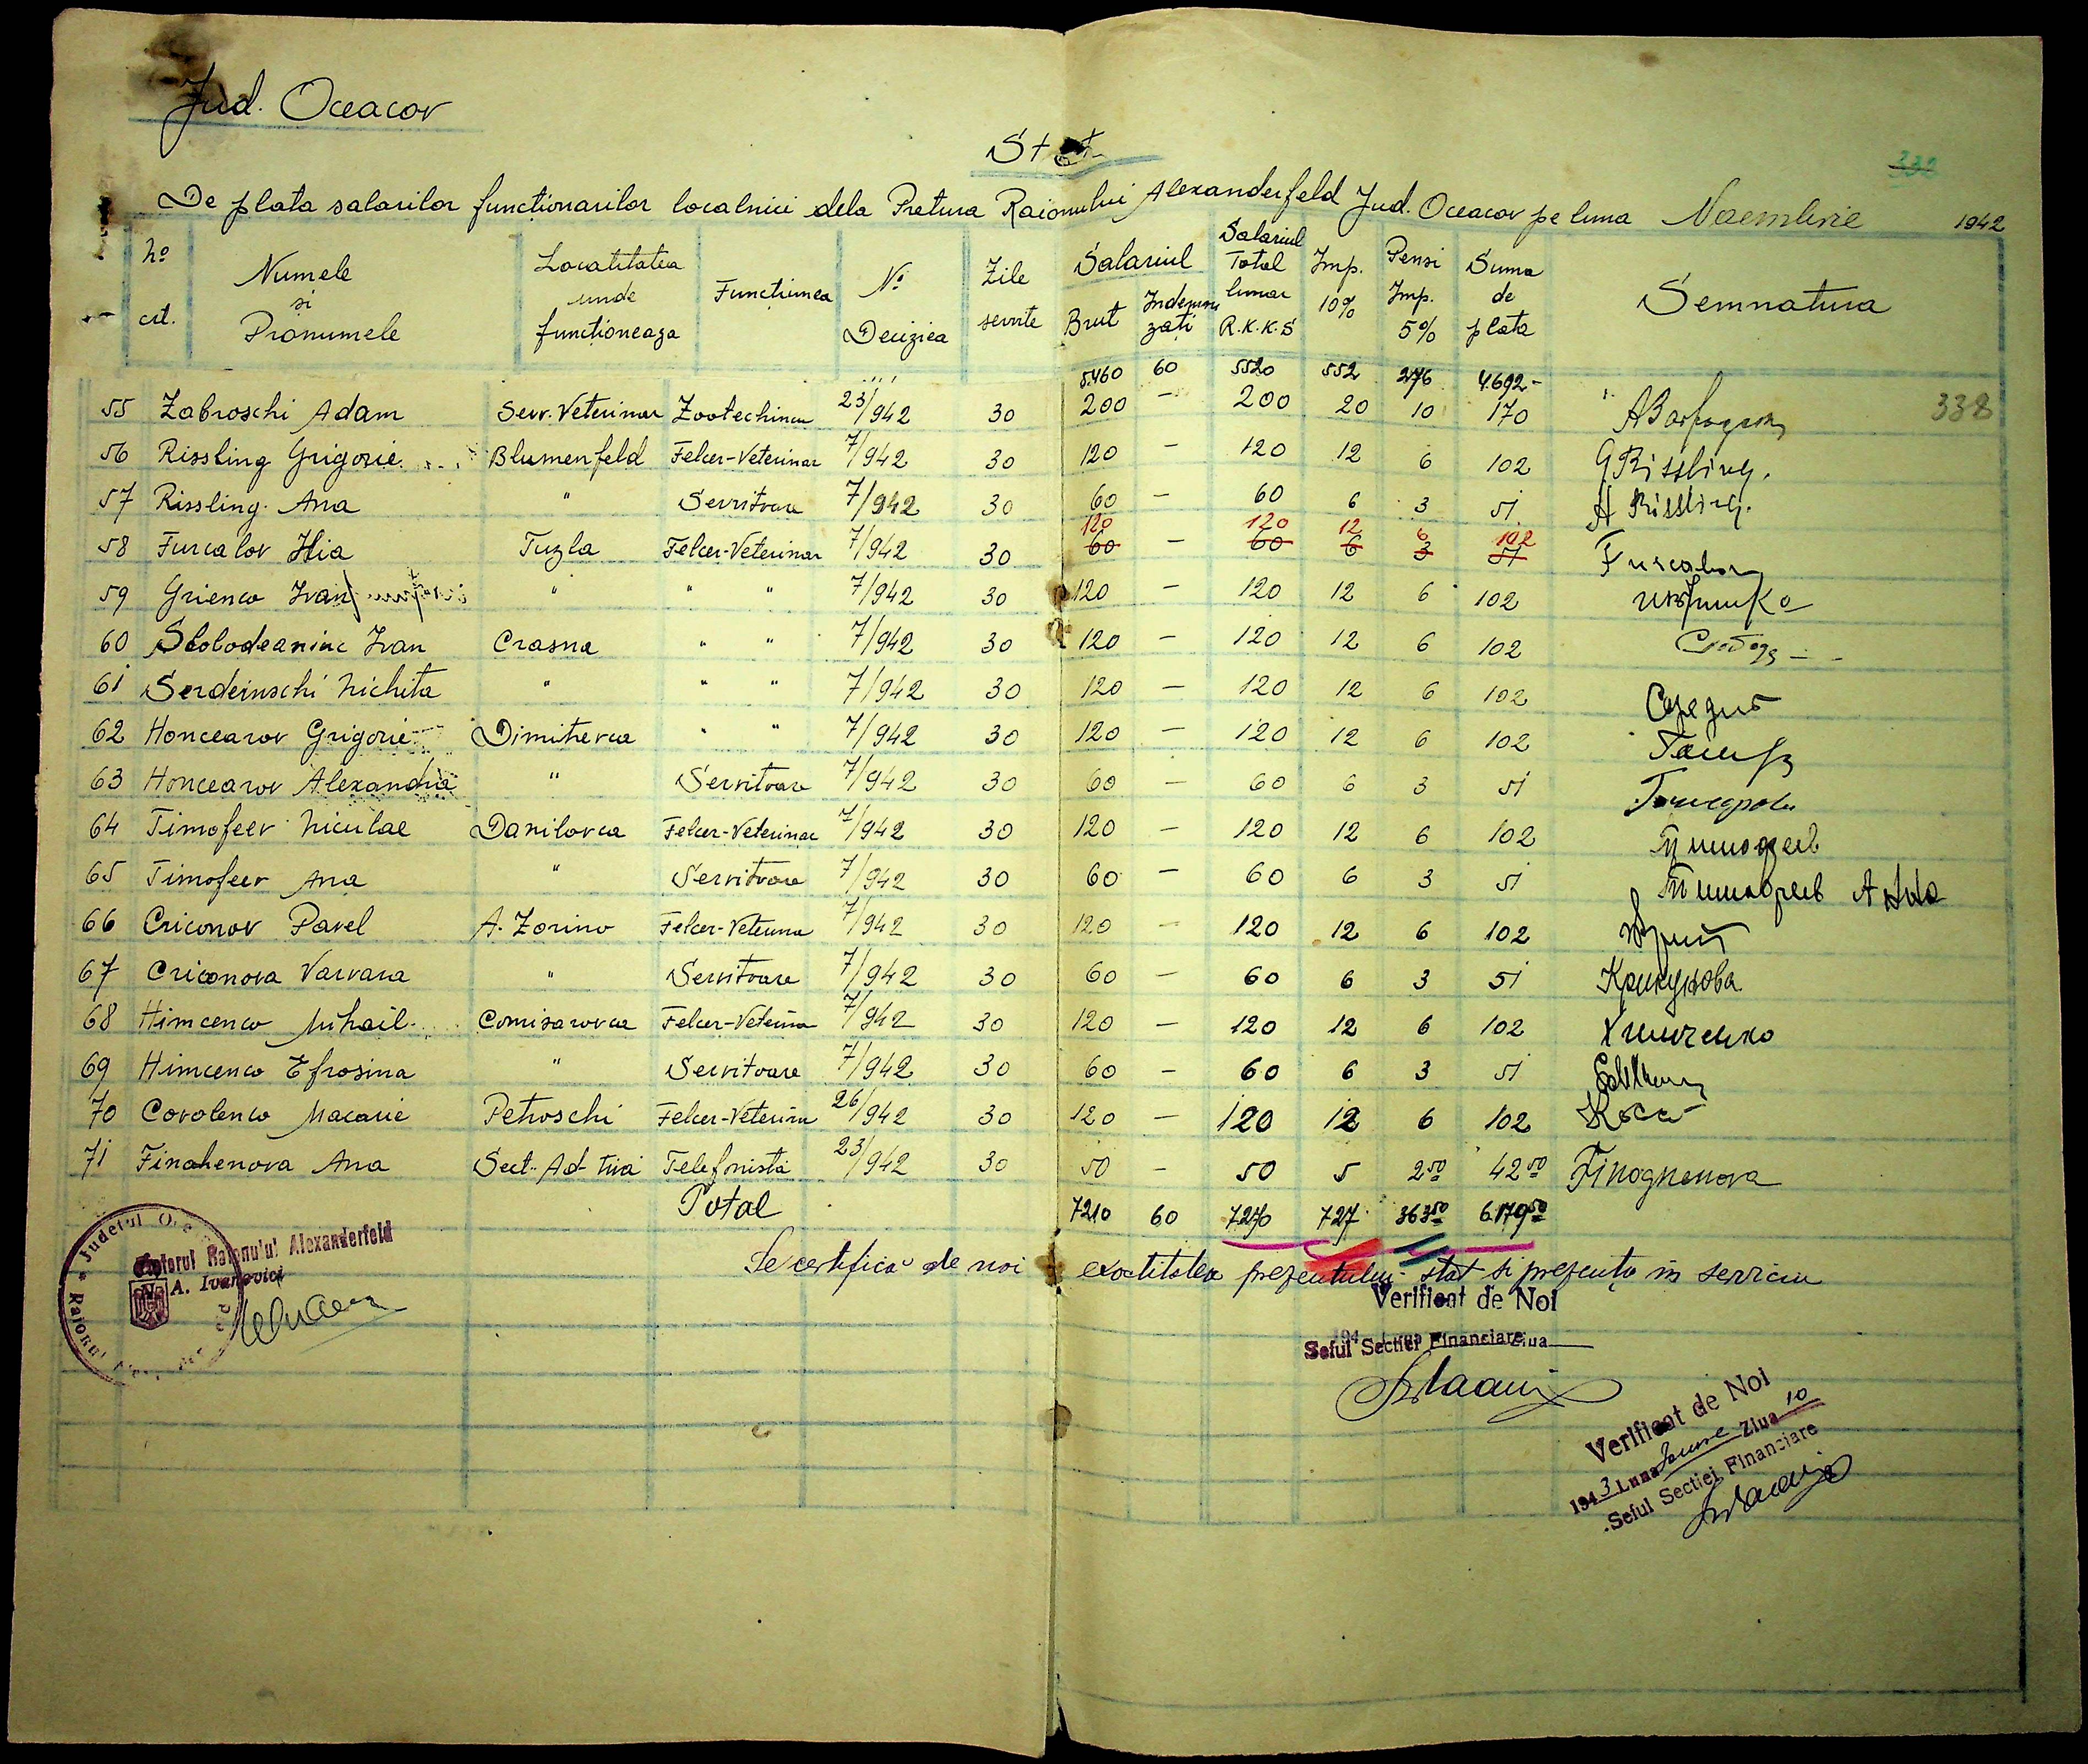 Jud. Oceacov
Stat
332
De plata salarilor functionarilor localnici dela Pretura Raionului Alexanderfeld Jud. Oceacov pe luna Noembrie 1942
No crt. Numele si Pronumele Localitatea unde funcționeaza Funcțiunea No Deciziea Zile servite Salariul Brut Indemnizati Salariul Total lunar R.K.K.S Imp. 10% Pensi Imp. 5% Suma de plata Semnatura
5.460 60 5520 552 276 4.692-
55 Zabroschi Adam Serv. Veterinar Zootechincu 23/942 30 200 - 200 20 10 170 338
56 Rissling Grigorie Blumenfeld Felcer-Veterinar 7/942 30 120 - 120 12 6 102 G Rissling.
57 Rissling Ana " Servitoare 7/942 30 60 - 60 6 3 51 A Rissling.
120 120 12 6 102
58 Furcalov Ilia Tuzla Felcer-Veterinar 7/942 30 60 - 60 6 3 51 Furcalov
59 Grienco Ivan " " " 7/942 30 120 - 120 12 6 102
60 Slolodeaninc Ivan Crasna " " 7/942 30 120 - 120 12 6 102
61 Serdeinschi Nichita " " " 7/942 30 120 - 120 12 6 102
62 Honcearov Grigorie Dimitrevca " " 7/942 30 120 - 120 12 6 102
63 Honcearov Alexandra " Servitoare 7/942 30 60 - 60 6 3 51
64 Timofeev Niculae Danilovca Felcer-Veterinar 7/942 30 120 - 120 12 6 102 Тимофеев
65 Timofeev Ana " Servitoare 7/942 30 60 - 60 6 3 51 Тимофеев Анна
66 Criconov Pavel A. Zorino Felcer-Veterina 7/942 30 120 - 120 12 6 102
67 Criconova Varvara " Servitoare 7/942 30 60 - 60 6 3 51 Крикунова
68 Himcenco Mihail Comisarovca Felcer-Veterina 7/942 30 120 - 120 12 6 102 Химченко
69 Himcenco Efrosina " Servitoare 7/942 30 60 - 60 6 3 51
70 Corolenco Macarie Petroschi Felcer-Veterin 26/942 30 120 - 120 12 6 102
71 Finahenova Ana Sect. Ad-tivă Telefonistă 23/942 30 50 - 50 5 2 50 42 50 Finognenova
Total 7210 60 7270 727 363 50 6.179 50
Se certifică de noi exactitatea prezentului stat si prezenta în serviciu
Judetul Oce
Raionul
Pretorul Raionului Alexanderfeld
A. Ivanovici
Verificat de Noi
Seful Sectiei Financiare
Verificat de Noi
1943 Luna Ziua 10
Seful Sectiei Financiare